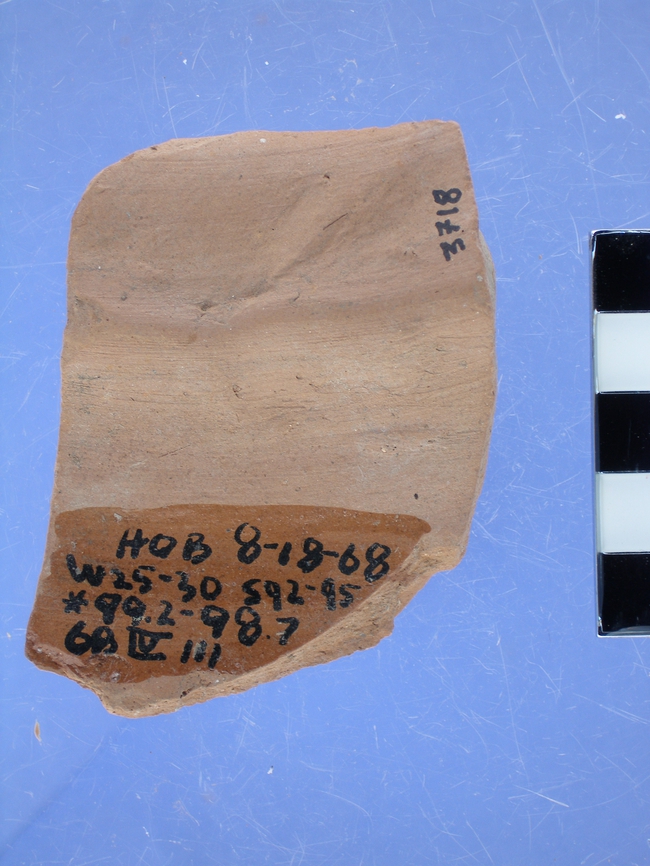 3718
HOB 8-18-68
W25-30 S92-95
*99.2-98.7
6B IV 111